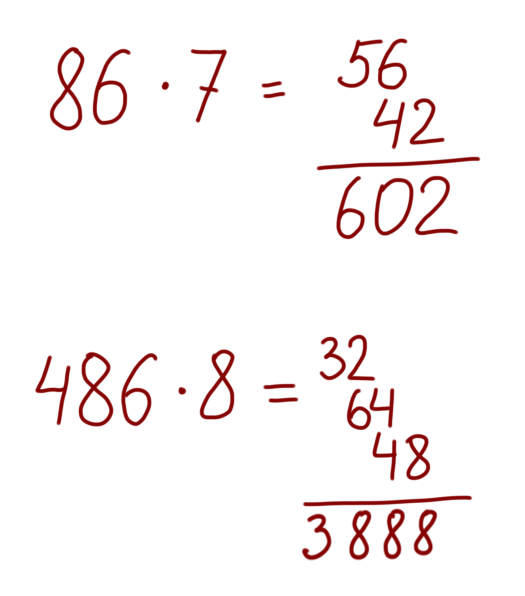 86 · 7 = 56
42
602
486 · 8 = 32
64
48
3888